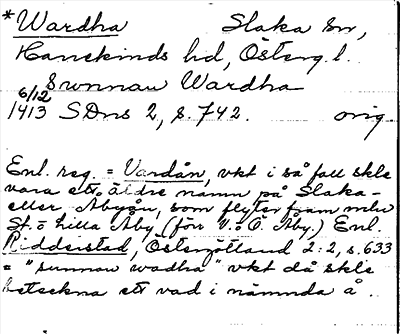 *Wardha Slaka sn,
Hanekinds hd, Österg. l.
Sunnan Wardha
6/12
1413 SDns 2, s. 742. orig.
Enl. reg. = Vardån, vkt i så fall skle
vara ett äldre namn på Slaka-
eller Åbyån, som flyter fram mln
St. o Lilla Åby (förr V. o Ö. Åby.) Enl.
Ridderstad, Östergötland 2:2, s. 633
= "sunnan wadha" vkt då skle
beteckna ett vad i nämnda å.